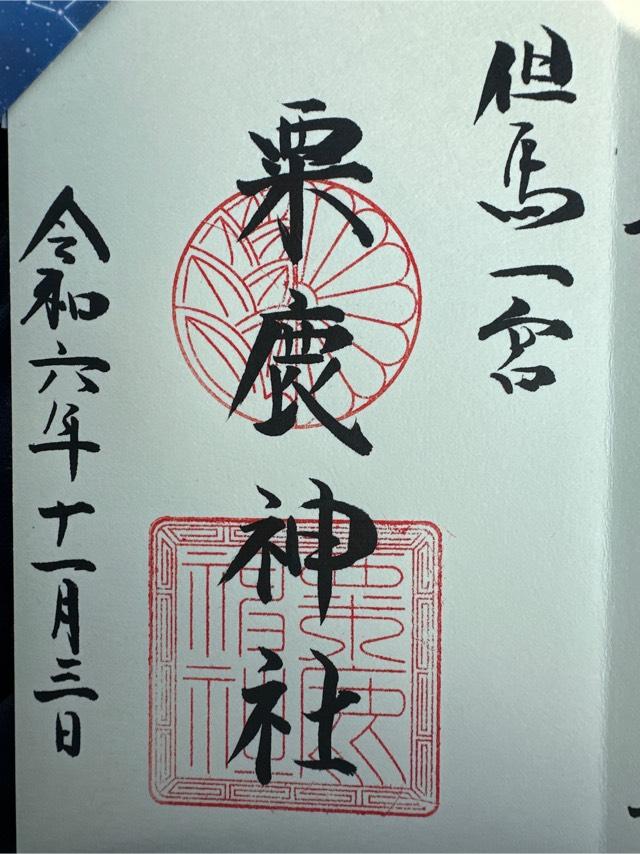 但馬一宮
粟鹿神社
令和六年十一月三日
粟鹿
神社